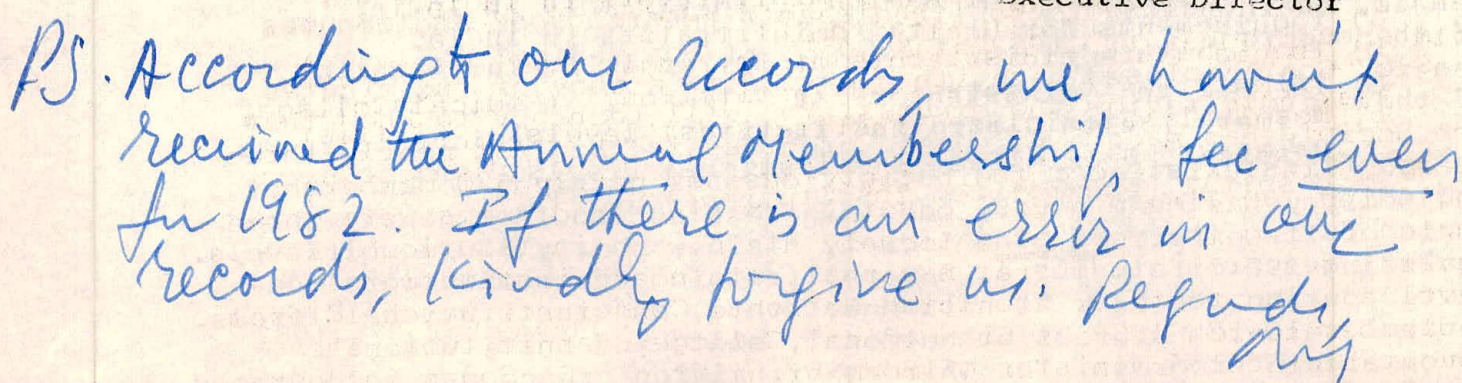 Executive Director
PS. According to our records, we havn't
received the Annual Membership fee even
for 1982. If there is an error in our
records, kindly forgive us. Regards,